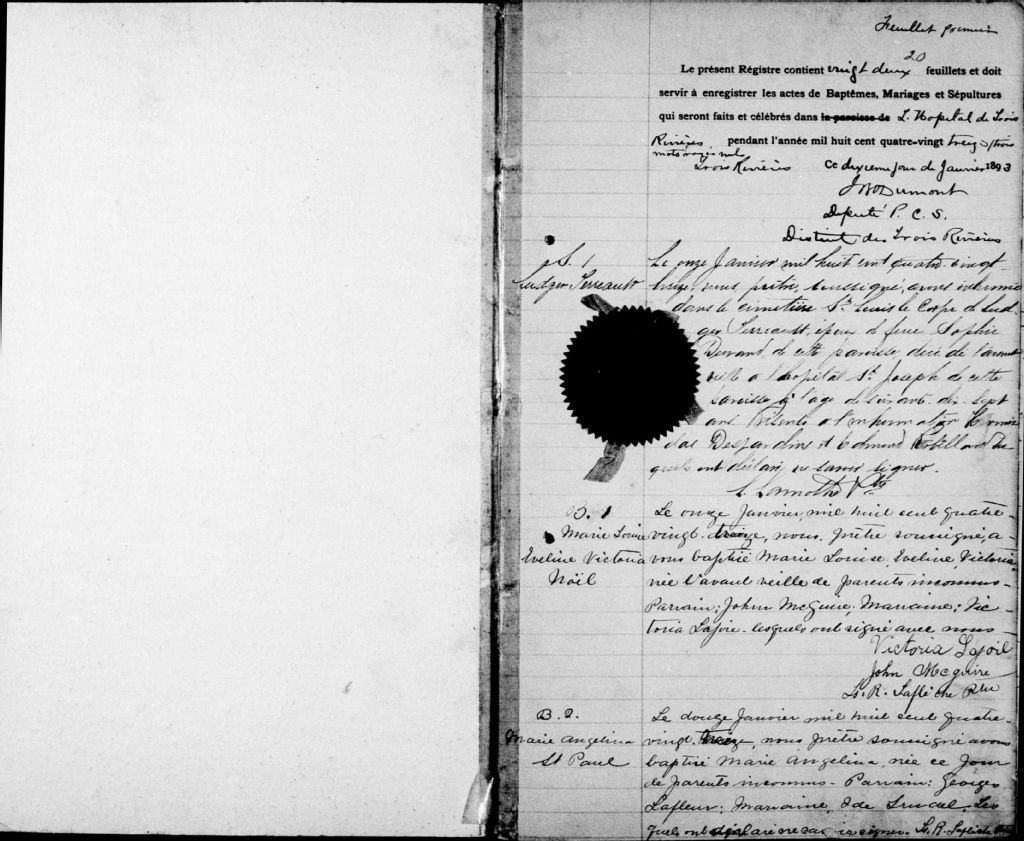 Feuillet premier
20
Le présent Régistre contient vingt deux feuillets et doit
servir à enregistrer les actes de Baptêmes, Mariages et Sépultures
qui seront faits et célébrés dans la paroisse de L'Hopital de Trois
Rivières pendant l'année mil huit cent quatre-vingt treize trois
mots rayés nuls
Trois Rivières Ce dixieme jour de Janvier 1893
Dumont
Député P. C. S.
District des Trois Rivières
S. 1
Ludger Perreault
Le onze Janvier mil huit cent quatre vingt
treize, nous prêtre, soussigné, avons inhumé
dans le cimetière St. Louis le corps de Lud-
ger Perreault, époux de feue Sophie
Durand, de cette paroisse, décédé l'avant
veille a l'hopital St. Joseph de cette
paroisse à l'age de soixante dix sept
ans Présents a l'inhumation
Desjardins et Edmond Robillard les-
quels ont déclaré ne savoir signer.
Lamothe Ptre
B. 1
Marie Louise
Eveline Victoria
Noël
Le onze Janvier, mil huit cent quatre-
vingt-treize, nous, prêtre soussigné, a-
vons baptisé Marie Louise, Eveline, Victoria,
née l'avant veille de parents inconnus-
Parrain; John McGuire; Marraine; Vic-
toria Lajoie- lesquels ont signé avec nous-
Victoria Lajoie
John Mcguire
L. R. Laflèche Ptre
B. 2.
Marie Angelina
St Paul
Le douze Janvier mil huit cent quatre-
vingt-treize, nous prêtre soussigné avons
baptisé Marie Angelina, née ce jour
de parents inconnus- Parrain: Georges
Lafleur; Marraine, Ida Trudel. Les-
quels ont déclaré ne savoir signer. L. R. Laflèche Ptre